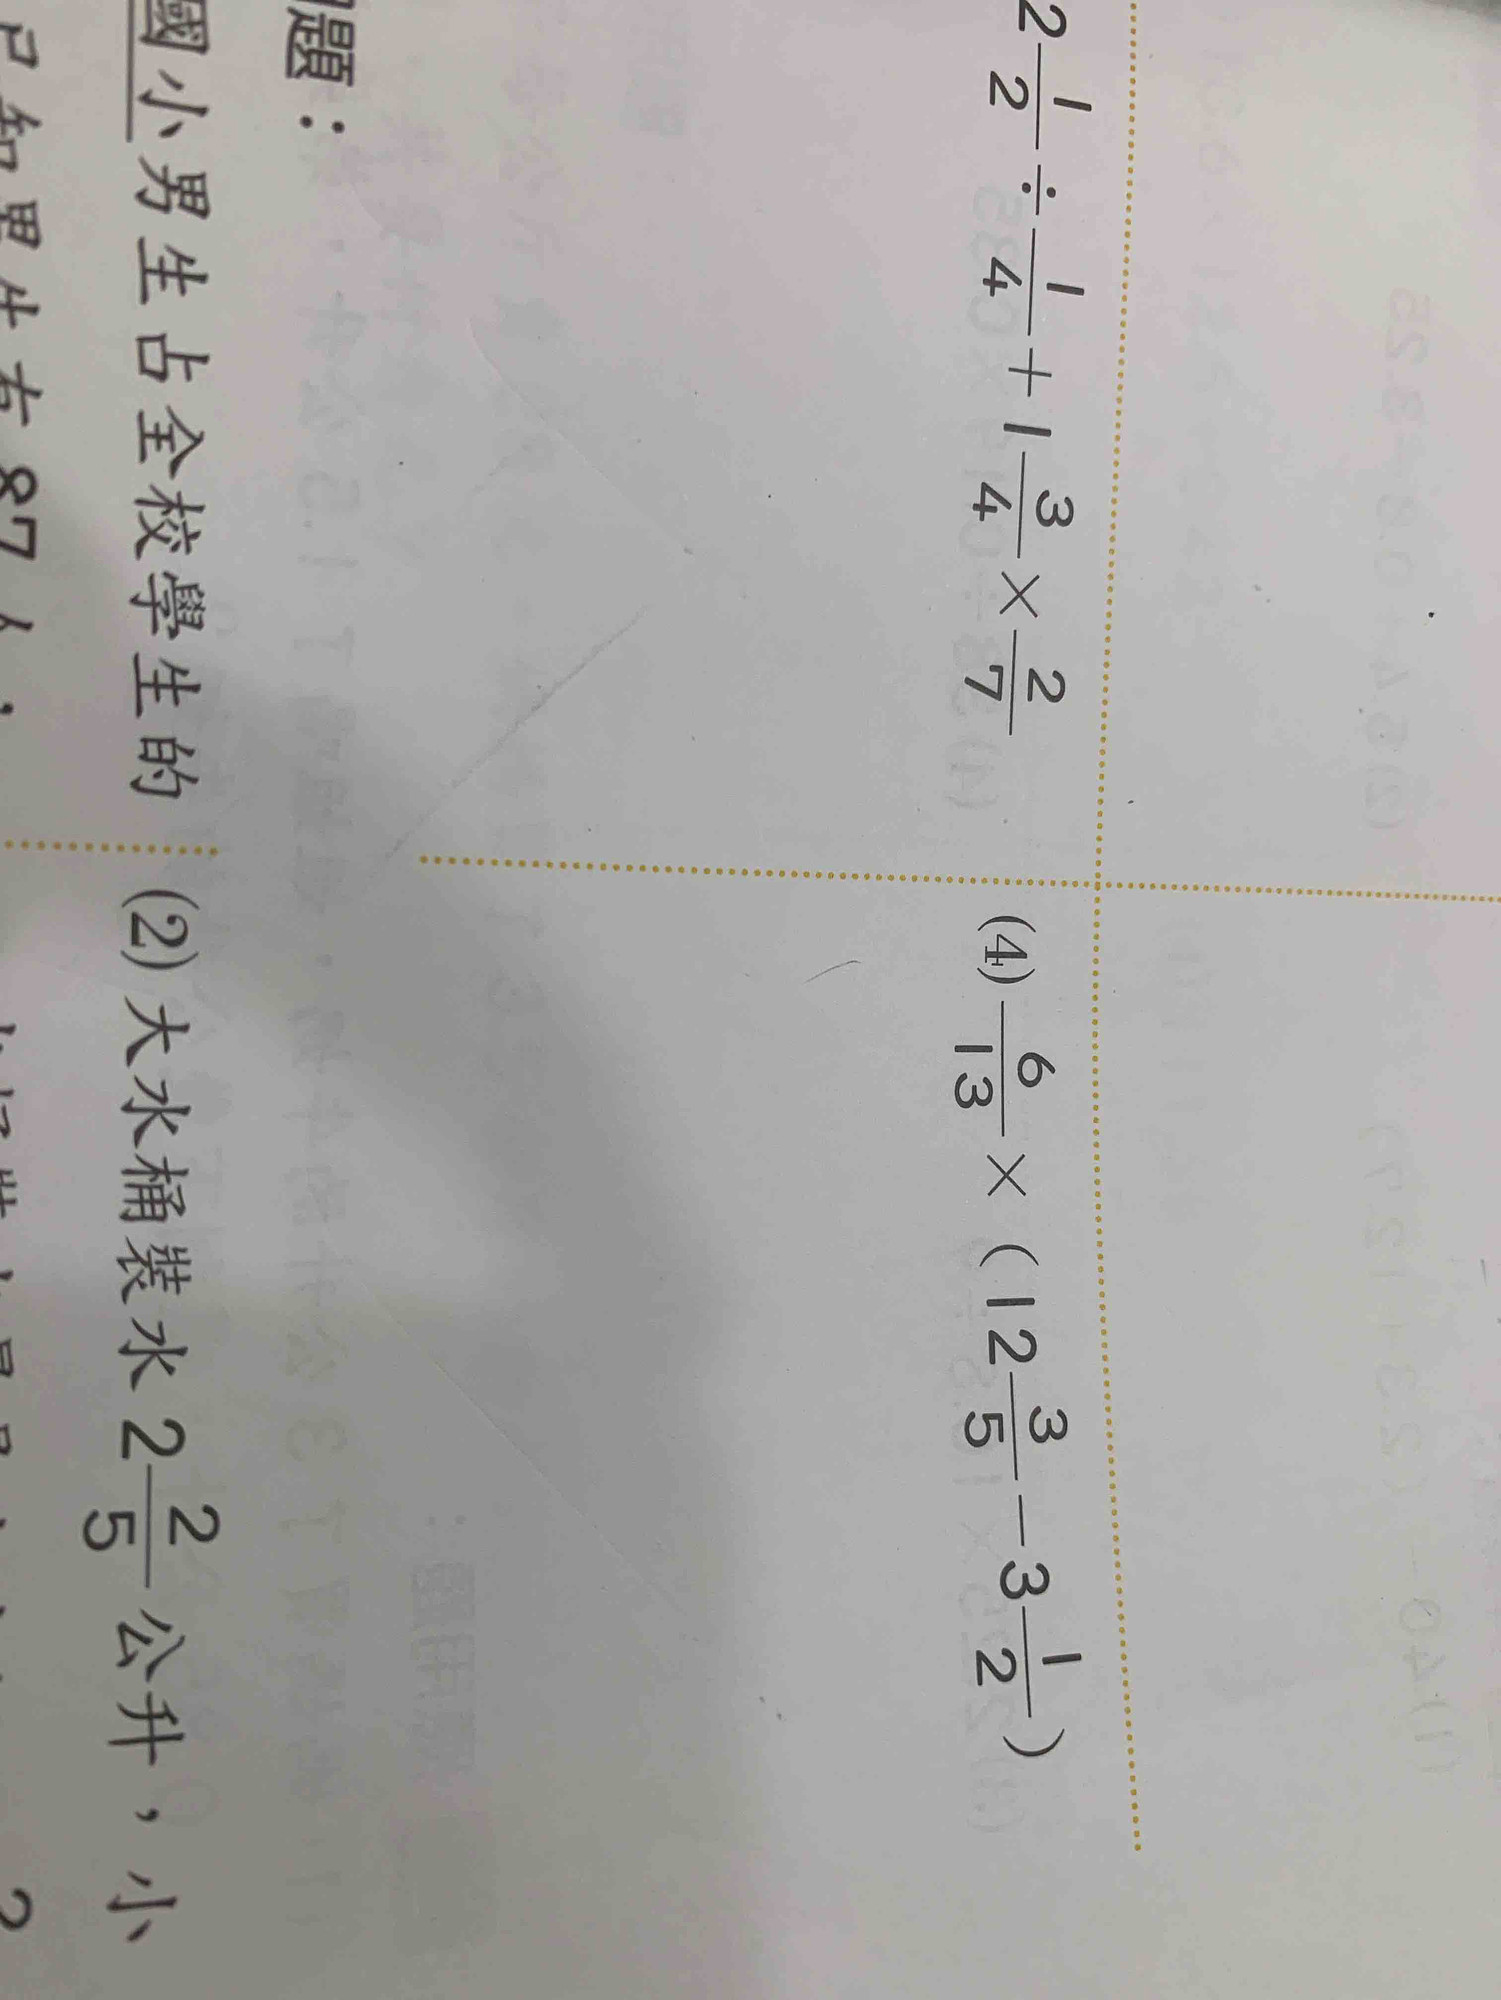 2 1/2 ÷ 1/4 + 1 3/4 × 2/7
(4) 6/13 × (12 3/5 − 3 1/2)
題：
國小男生占全校學生的
(2) 大水桶裝水 2 2/5 公升，小
已知男生有87人，
2